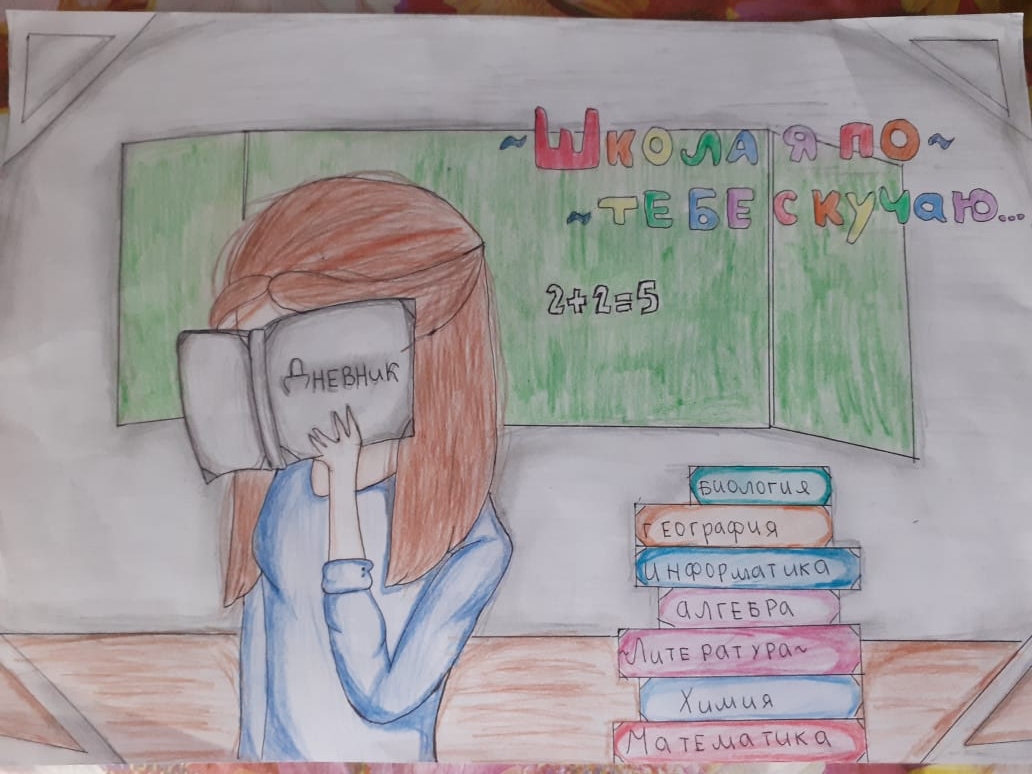 ~Школа я по~
~тебе скучаю...
2+2=5
Дневник
Биология
География
Информатика
Алгебра
~Литература~
Химия
Математика